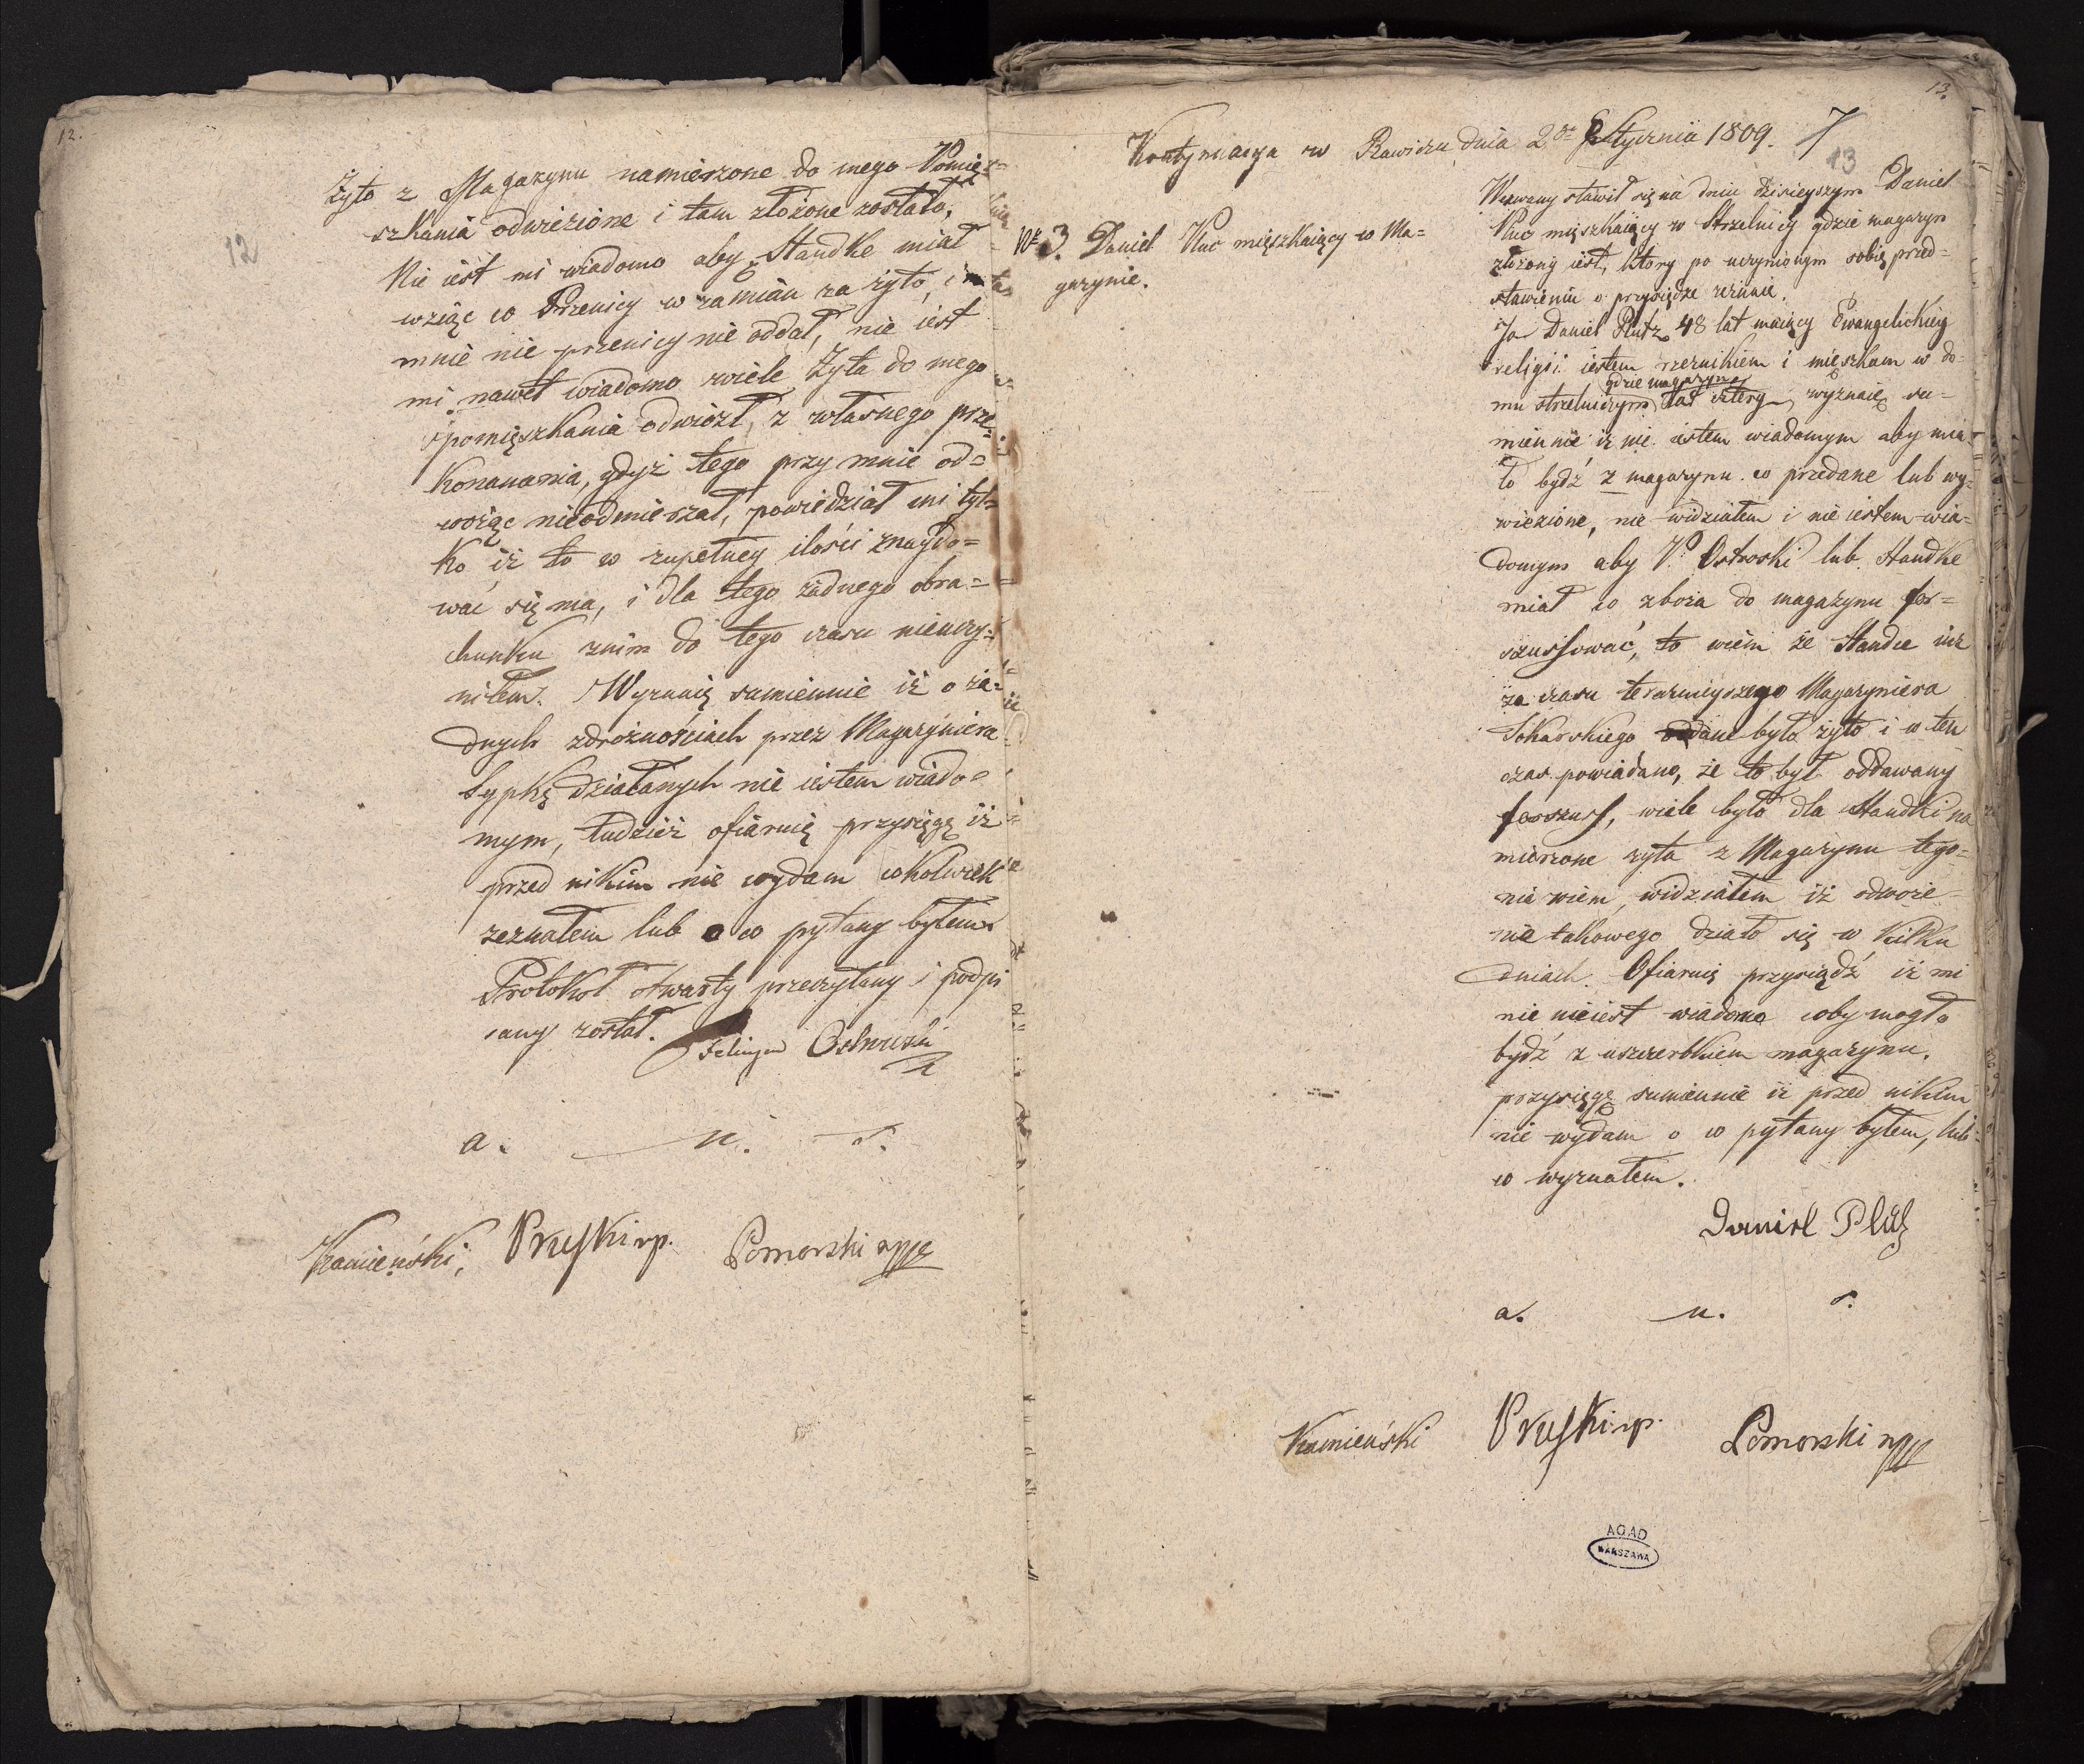 12.
12
Żyto z Magazynu namierzone do mego Pomię=
szkania odwiezione i tam złożone zostało,
Nie iest mi wiadomo aby Standke miał
wziąc co Przenicy w zamian za żyto, i
mnie nie przenicy nie oddał, nie iest
mi nawet wiadomo wiele Żyta do mego
pomięszkania odwiózł, z własnego prze=
konanania, gdyż tego przy mnie od=
wożąc nieodmierzał, powiedział mi tyl=
ko iż to w zupełney ilości znaydo=
wać się ma, i dla tego żadnego obra=
chunku znim do tego czasu nieuczy=
niłem. Wyznaię sumiennie iż o ża=
dnych zdrożnościach przez Magazyniera
Sypkę działanych nie iestem wiado=
mym, tudzież ofiaruię przysięgę iż
przed nikim nie wydam cokolwiek
zeznałem lub o co pytany byłem
Protokół otwarty przeczytany i podpi
sany został.
a. u. s.
Kamieński, Pruski mp. Pomorski mpp
13.
7
13
Kontynuacya w Rawiczu dnia 2go Stycznia 1809.
Nr 3. Daniel Kuc mięszkaiący w Ma=
gazynie.
Wezwany stawił się na dniu dzisieyszym Daniel
Kuc mięszkaiący w Strzelnicy gdzie magazyn
złożony iest, ktory po uczynionym sobie przed=
stawieniu o przysiędze zeznaie.
Ja Daniel Plutz 48 lat maiący Ewangelickiey
religii iestem rzeznikiem i mieszkam w do=
gdzie magazyn
mu strzelniczym lat cztery, wyznaię su=
miennie iż nie iestem wiadomym aby mia=
ło bydź z magazynu co przedane lub wy=
wiezione, nie widziałem i nie iestem wia=
domym aby P. Ostroski lub Standke
miał co zboża do magazynu for=
szussować, to wiem że Standce iuż
za czasu teraznieyszego Magazyniera
Sokarskiego oddane było żyto i w ten
czas powiadano, że to był oddawany
forszuss, wiele było dla Standki na
mierzone żyta z Magazynu tego=
nie wiem, widziałem iż odwoże=
nie takowego działo się w kilku
dniach. Ofiaruię przysiądź iż mi
nic nieiest wiadomo coby mogło
bydź z uszczerbkiem magazynu.
przysięgę sumiennie iż przed nikim
nie wydam o co pytany byłem, lub
co wyznałem.
Daniel Plutz
a. u. s.
Kamieński Pruski mp. Pomorski mpp
AGAD
WARSZAWA